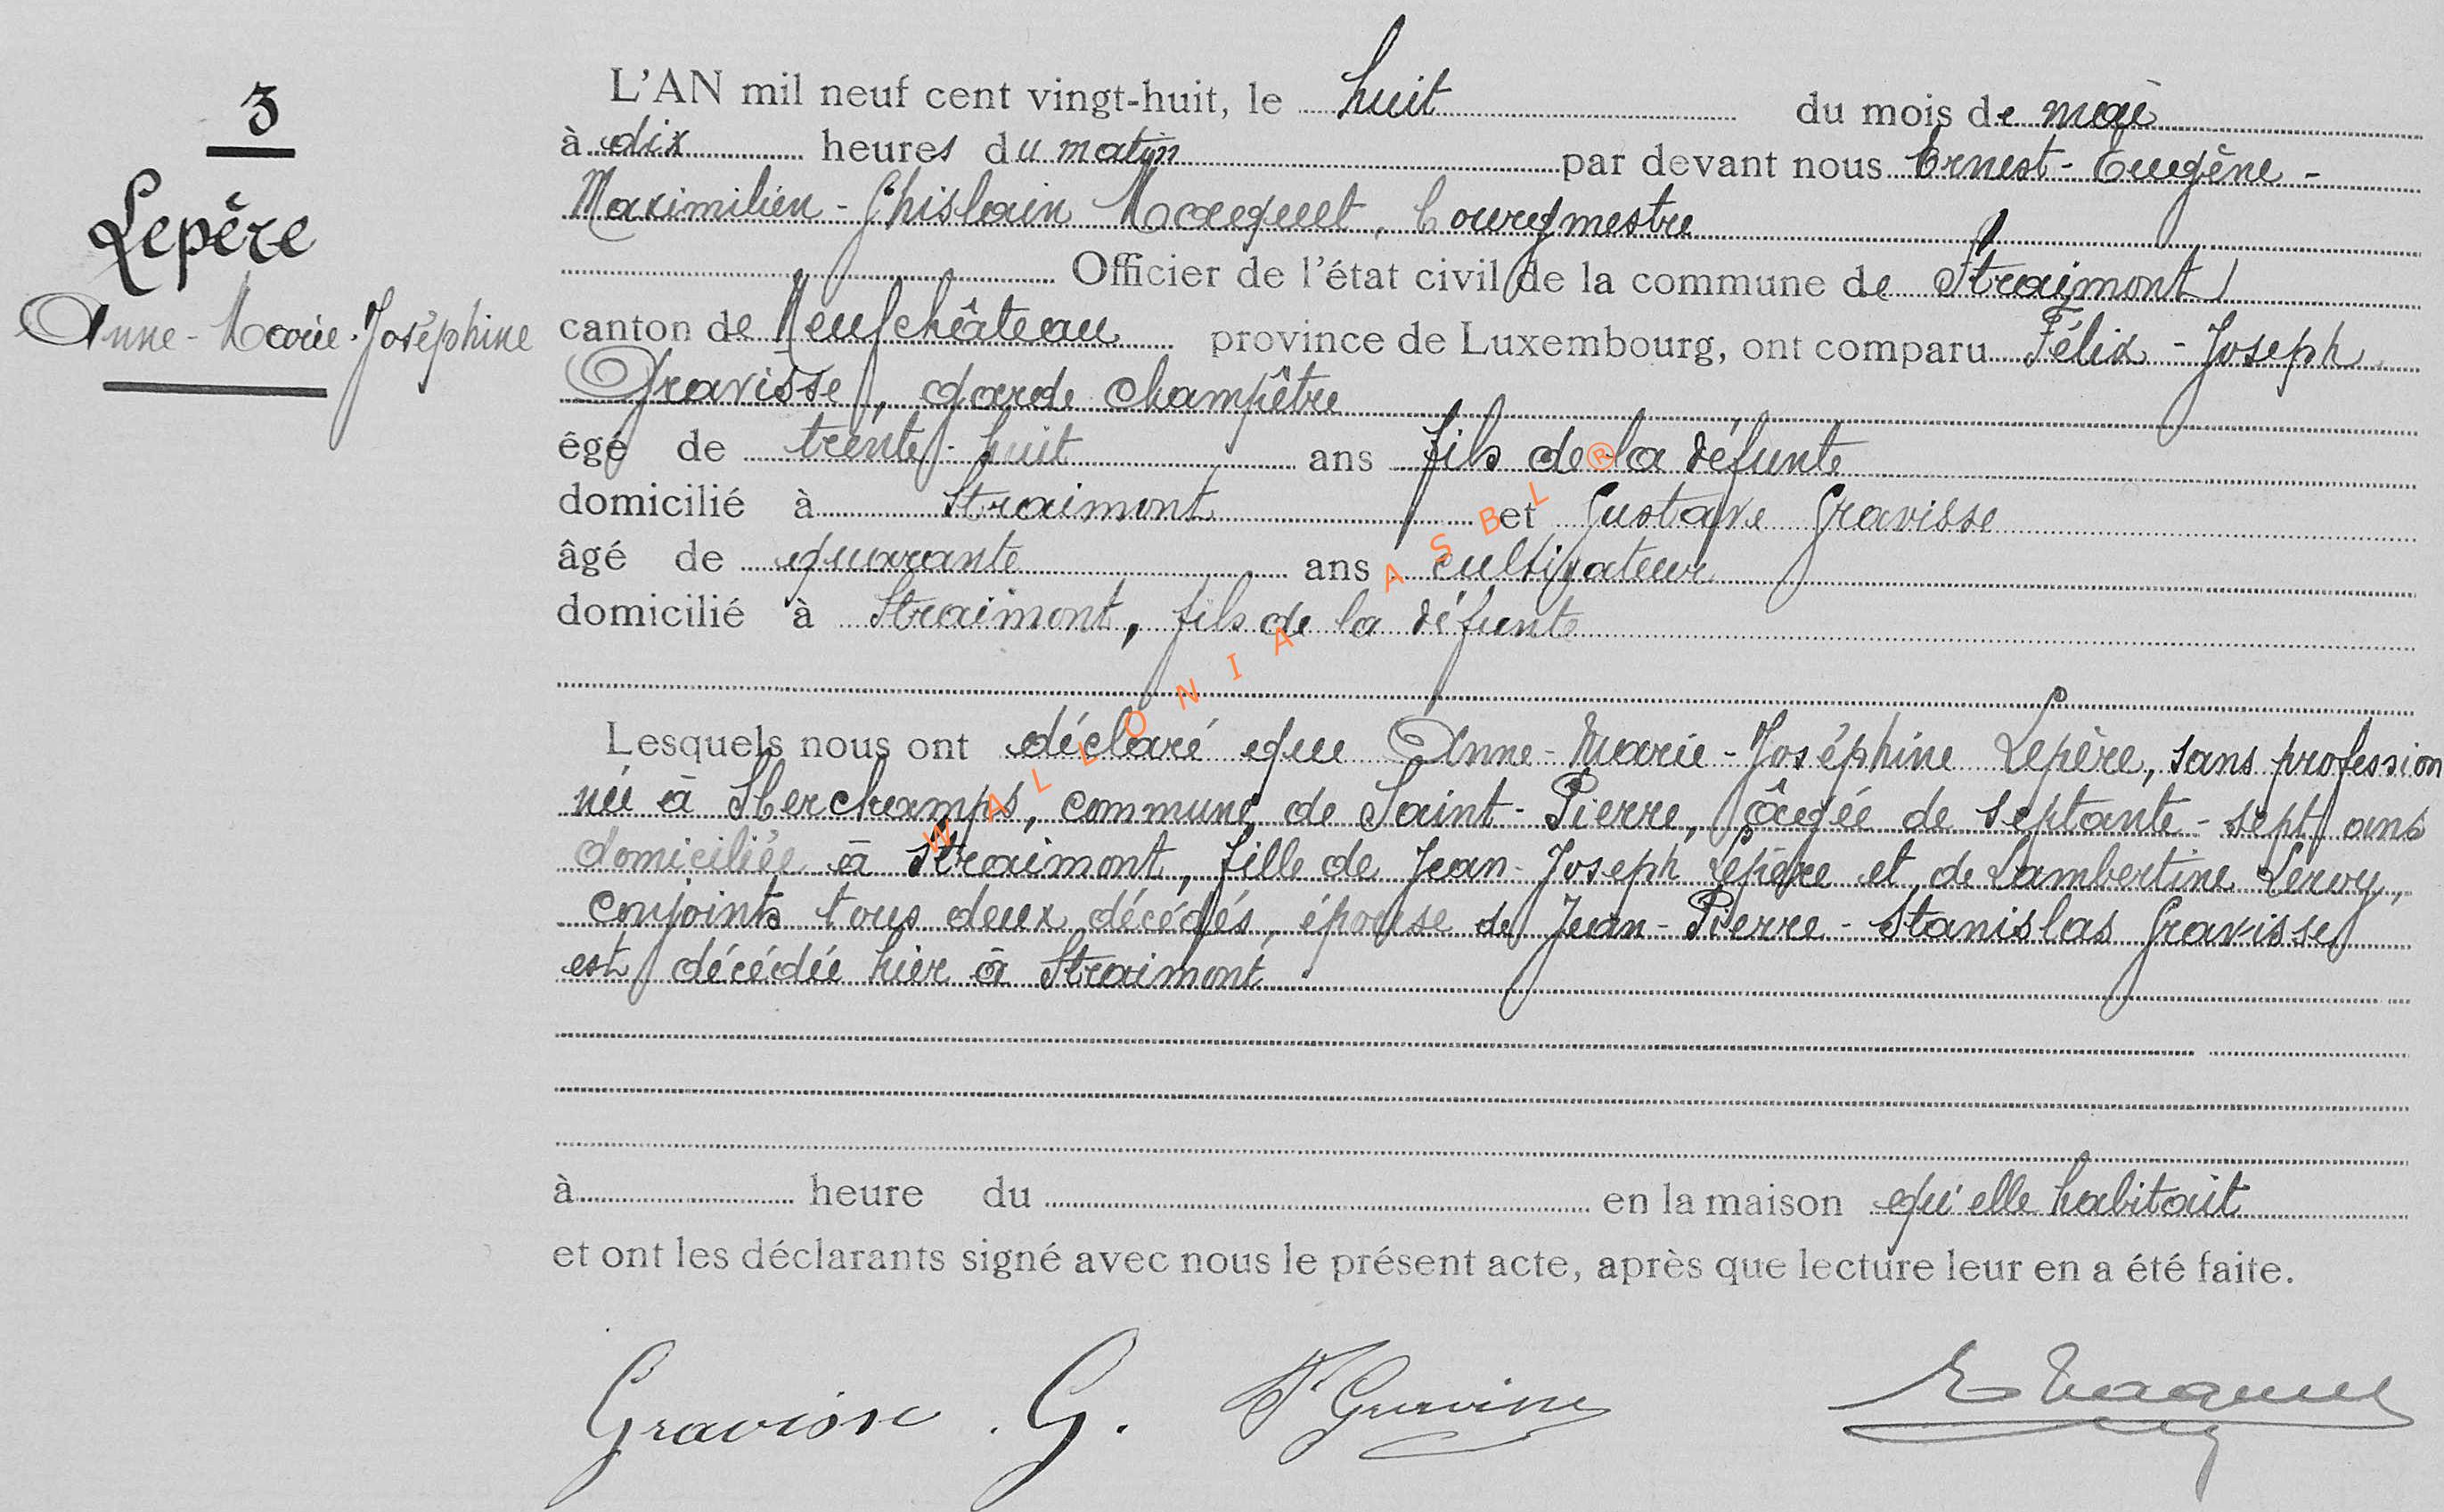 3
Lepère
Anne-Marie-Joséphine
L'AN mil neuf cent vingt-huit, le huit du mois de mai
à dix heures du matin par devant nous Ernest-Eugène-
Maximilien-Ghislain Maquet, bourgmestre
Officier de l'état civil de la commune de Straimont
canton de Neufchâteau province de Luxembourg, ont comparu Félix-Joseph
Gravisse, garde champêtre
égé de trente-huit ans fils de la défunte
domicilié à Straimont et Gustave Gravisse
âgé de quarante ans cultivateur
domicilié à Straimont, fils de la défunte
Lesquels nous ont déclaré que Anne-Marie-Joséphine Lepère, sans profession
née à Sberchamps, commune de Saint-Pierre, âgée de septante-sept ans
domiciliée à Straimont, fille de Jean-Joseph Lepère et de Lambertine Leroy,
conjoints tous deux décédés, épouse de Jean-Pierre-Stanislas Gravisse
est décédée hier à Straimont
à heure du en la maison qu'elle habitait
et ont les déclarants signé avec nous le présent acte, après que lecture leur en a été faite.
Gravisse . G. F Gravisse E Maquet
WALLONIA ASBL ®